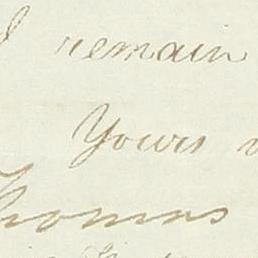 I remain
Yours
Thomas